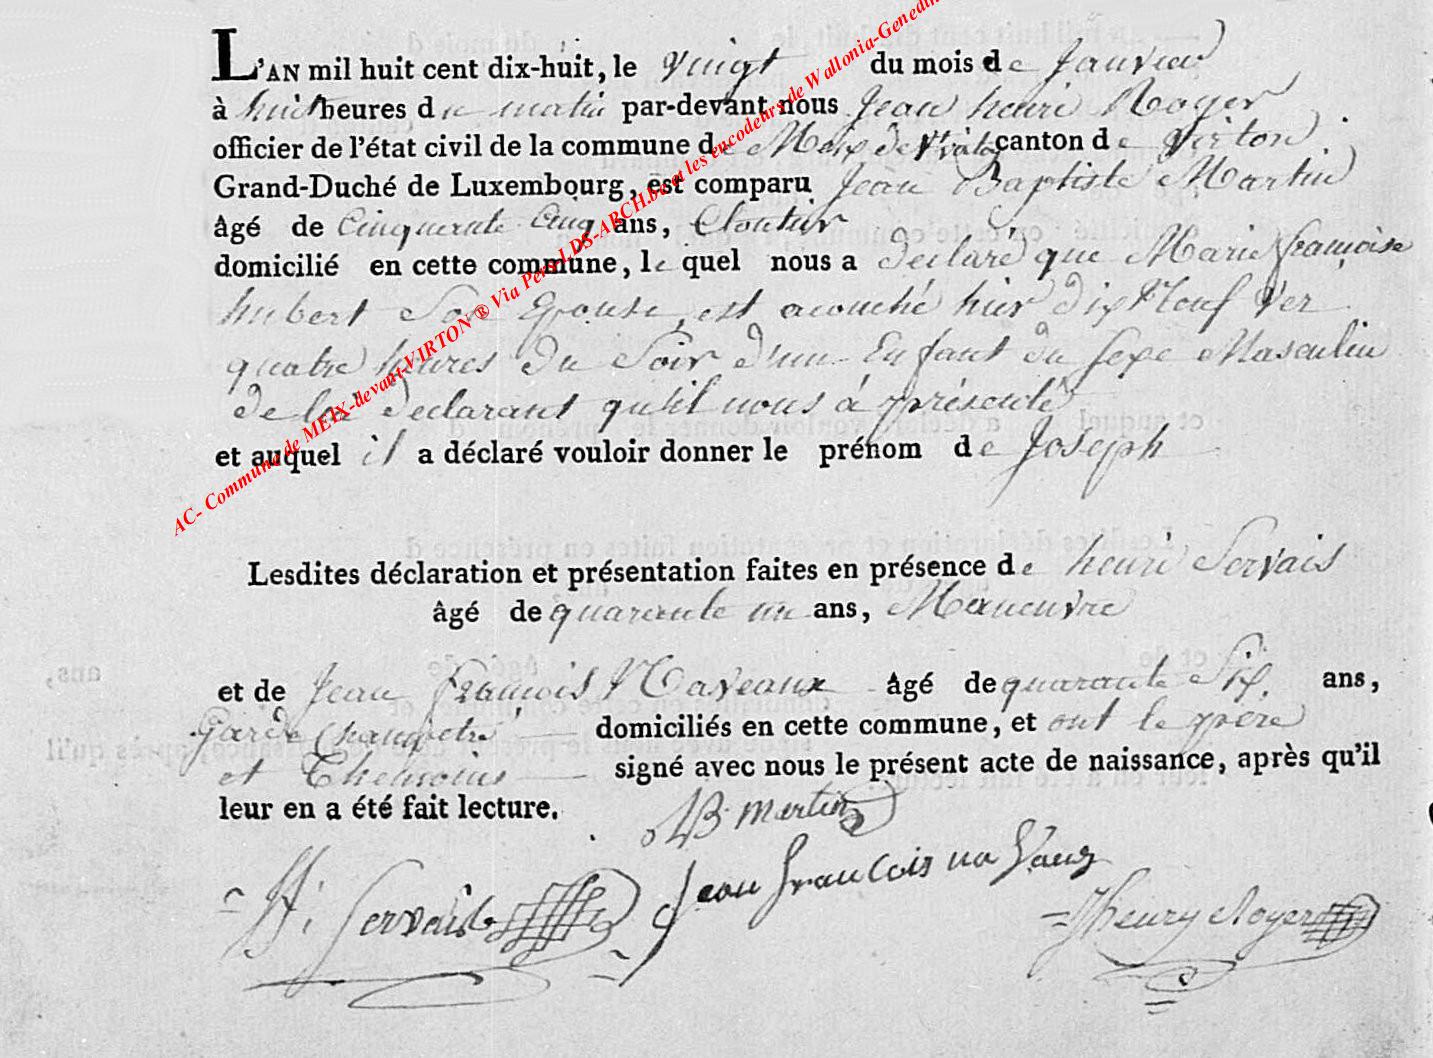 L'AN mil huit cent dix-huit, le vingt du mois de Janvier
à huit heures du matin par-devant nous Jean henri Noyer
officier de l'état civil de la commune de Meix devt Virton canton de Virton
Grand-Duché de Luxembourg, est comparu Jean Baptiste Martin
âgé de Cinquante Cinq ans, Cloutier
domicilié en cette commune, le quel nous a declaré que Marie françoise
hubert Son Epouse, est acouché hier dix Neuf ver
quatre heures du Soir d'un Enfant du Sexe Masculin
de lui declarant qu'il nous à présenté
et auquel il a déclaré vouloir donner le prénom de Joseph
Lesdites déclaration et présentation faites en présence de henri Servais
âgé de quarante un ans, Maneuvre
et de Jean françois Naveaux âgé de quarante Six ans,
Garde Champetre domiciliés en cette commune, et ont le père
et Themoins signé avec nous le présent acte de naissance, après qu'il
leur en a été fait lecture.
JB. martin
H. Servais
Jean francois navaux
Jhenry Noyer
AC- Commune de MEIX-devant-VIRTON ® Via Pers-LDS-ARCH.be et les encodeurs de Wallonia-Genedin